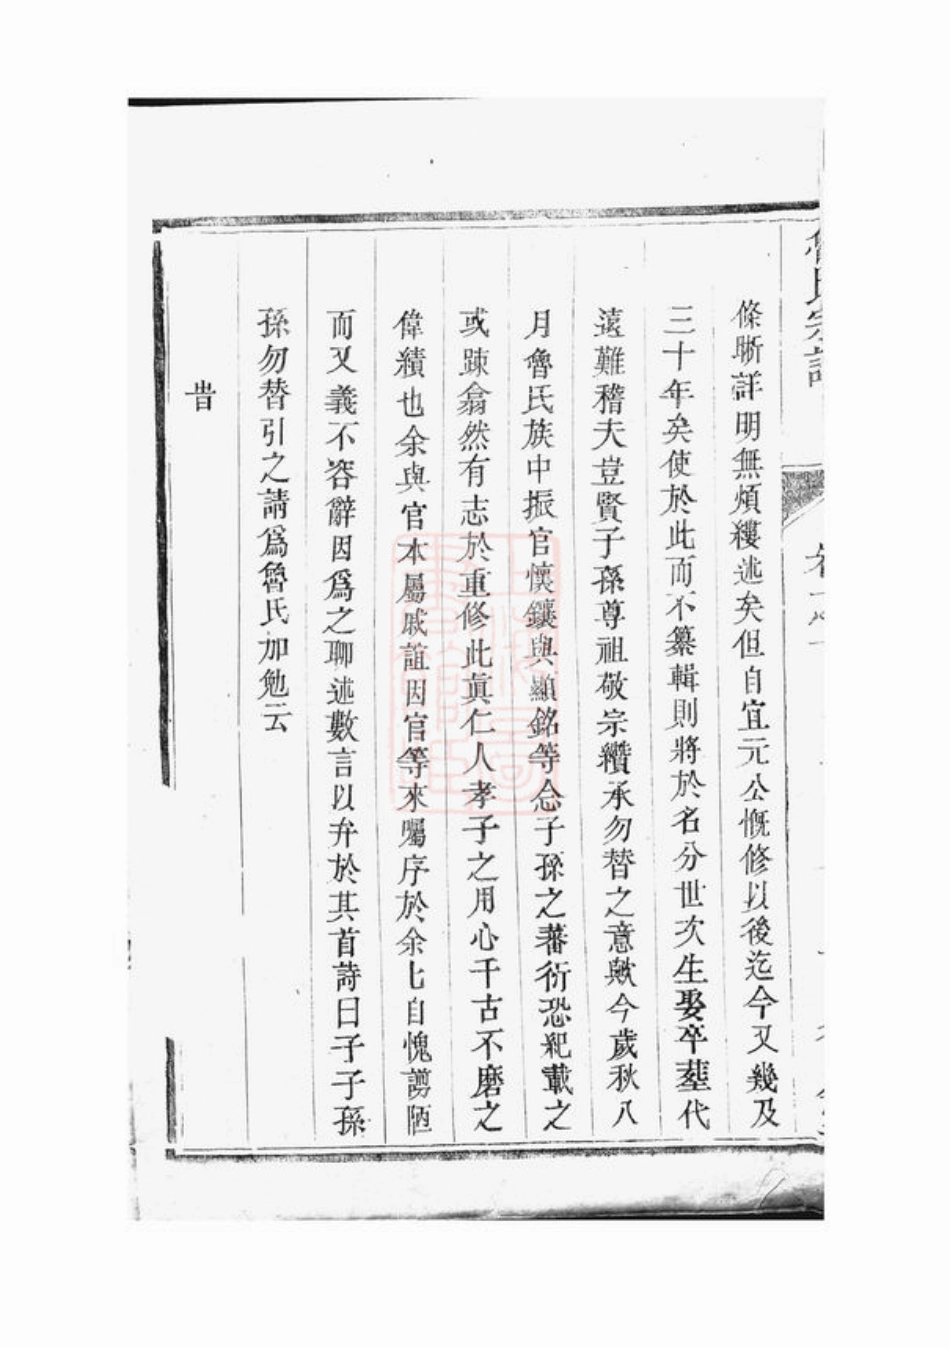 魯氏宗譜
條晰詳明無煩縷述矣但自宜元公慨修以後迄今又幾及
三十年矣使於此而不纂輯則將於名分世次生娶卒塟代
遠難稽夫豈賢子孫尊祖敬宗纘承勿替之意歟今歲秋八
月魯氏族中振官懷鑲與顯銘等念子孫之蕃衍恐紀載之
或踈翕然有志於重修此眞仁人孝子之用心千古不磨之
偉績也余與官本屬戚誼因官等來囑序於余匕自愧謭陋
而又義不容辭因爲之聊述數言以弁於其首詩曰子子孫
孫勿替引之請爲魯氏加勉云
旹